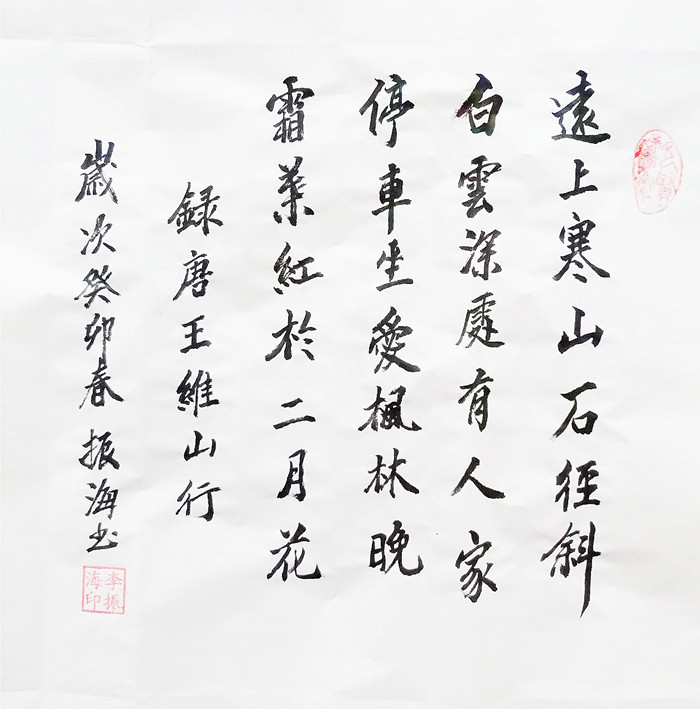 遠上寒山石徑斜
白雲深處有人家
停車坐愛楓林晚
霜葉紅於二月花
録唐王維山行
歲次癸卯春 振海书
李振海印